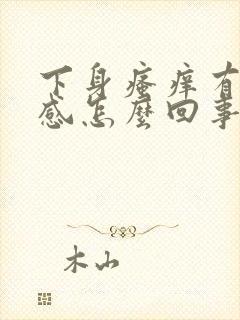 下身瘙痒有
感怎麼回事
木山